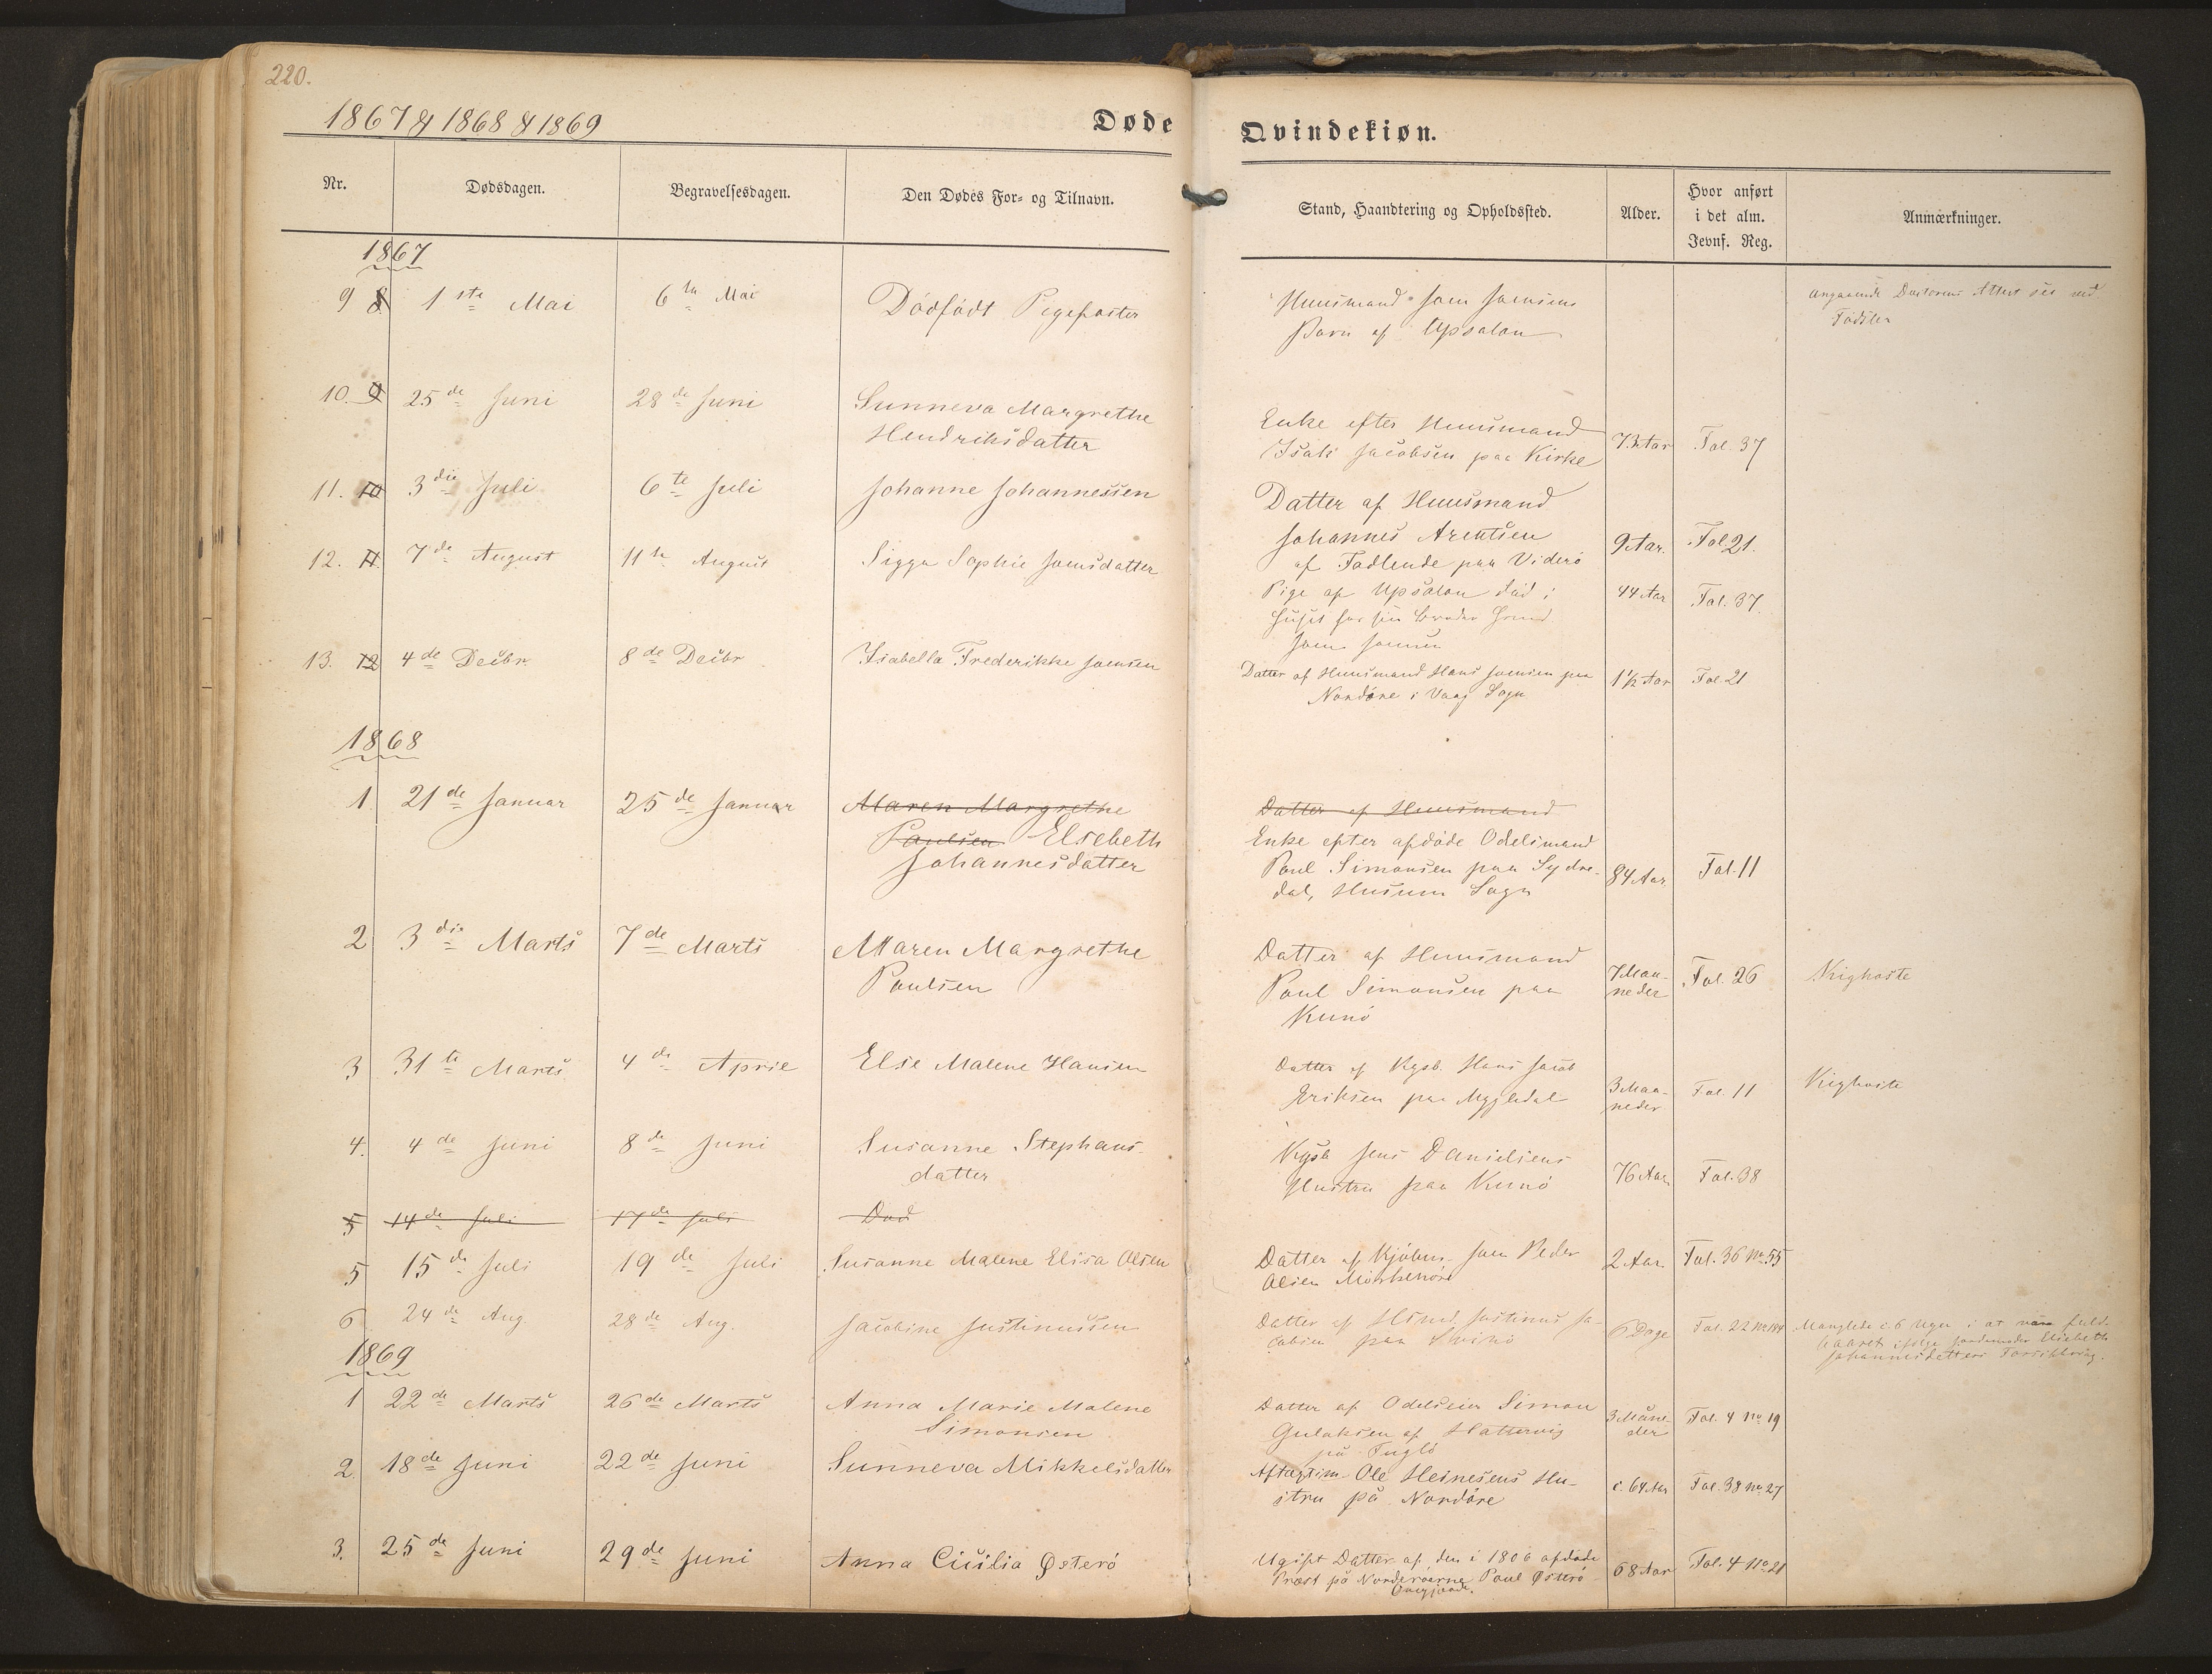 220.
1867 & 1868 & 1869
Døde
Qvindekiøn.
Nr.
Dødsdagen.
Begravelsesdagen.
Den Dødes For- og Tilnavn.
Stand, Haandtering og Opholdssted.
Alder.
Hvor anført
i det alm.
Jevnf. Reg.
Anmærkninger.
1867
9 8 1ste Mai 6te Mai Dødfødt Pigefoster Huusmand Joen Joensens
Barn af Upsalon
Angaaende Doctorens Attest see ved
Fødsler
10. 9 25de Juni 28de Juni Sunneva Margrethe
Hendriksdatter
Enke efter Huusmand
Isak Jacobsen paa Kirke 73 Aar Fol. 37
11. 10 3die Juli 6te Juli Johanne Johannessen Datter af Huusmand
Johannes Arentsen 9 Aar. Fol. 21.
af Fodlende paa Viderö
12. 11. 7de August 11te August Sigga Sophie Joensdatter Pige af Upsalon död i 44 Aar Fol. 37.
Huset hos sin Broder
Joen
13. 12 4de Decbr. 8de Decbr Isabella Frederikke Joensen Datter af Huusmand Hans Joensen paa 1½ Aar Fol. 21
Nordöre i Vaag Sogn
1868
1 21de Januar 25de Januar Maren Margrethe
Paulsen Elsebeth
Johannesdatter
Datter af Huusmand
Enke efter afdöde Odelsmand
Poul Simonsen paa Sydre- 84 Aar Fol. 11
dal, Husum Sogn
2 3die Marts 7de Marts Maren Margrethe
Poulsen
Datter af Huusmand
Poul Simonsen paa
Kunö
7 Maa-
neder
Fol. 26 Kighoste
3 31te Marts 4de April Else Malene Hansen Datter af Kgsb. Hans Jacob
Eriksen paa Mygledal
3 Maa-
neder
Fol. 11 Kighoste
4. 4de Juni 8de Juni Susanne Stephans-
datter
Kgsb Jens Danielsens
Hustru paa Kunö
76 Aar Fol. 38
5 14de Juli 17de Juli Död
5 15de Juli 19de Juli Susanne Malene Elisa Olsen Datter af Kjöbm. Joen Peder
Olsen Mörkenöre
2 Aar Fol. 36 No. 55
6 24de Aug. 28de Aug. Jacobine Justinussen Datter af Hsmd. Justinus Ja-
cobsen paa Svinö
6 Dage Fol. 22 No 184 Manglede c. 6 Uger i at være fuld-
baaret ifölge Jordemoder Elsebeth
Johannesdatters Forsikkring.
1869
1 22de Marts 26de Marts Anna Marie Malene
Simonsen
Datter af Odelseier Simon
Gulaksen af Hattervig
på Fuglö
3 Måne-
der
Fol. 4 No 19
2 18de Juni 22de Juni Sunneva Mikkelsdatter Aftægtsm. Ole Heinesens Hu-
stru på Nordöre
c. 64 Aar Fol. 38 No 27
3. 25de Juni 29de Juni Anna Cicilia Østerö Ugift Datter af den i 1806 afdöde
Præst på Norderöerne Poul Østerö
68 Aar Fol. 4 No 21